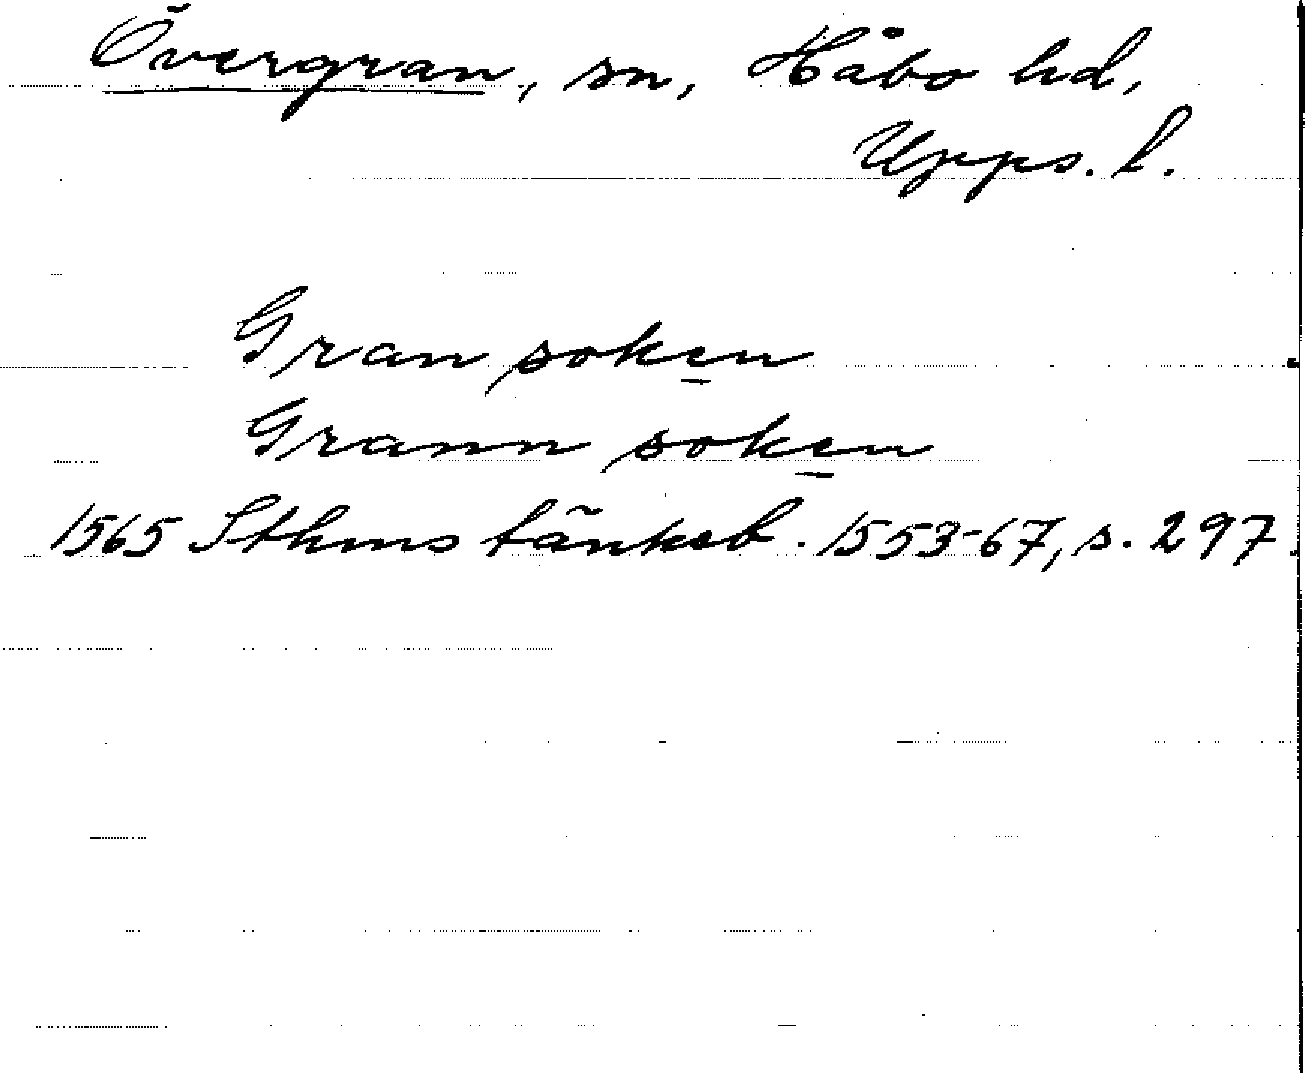 Övergran, sn, Håbo hd,
Upps. l.
Gran soken
Grann soken
1565 Sthms tänkeb. 1553-67, s. 297.